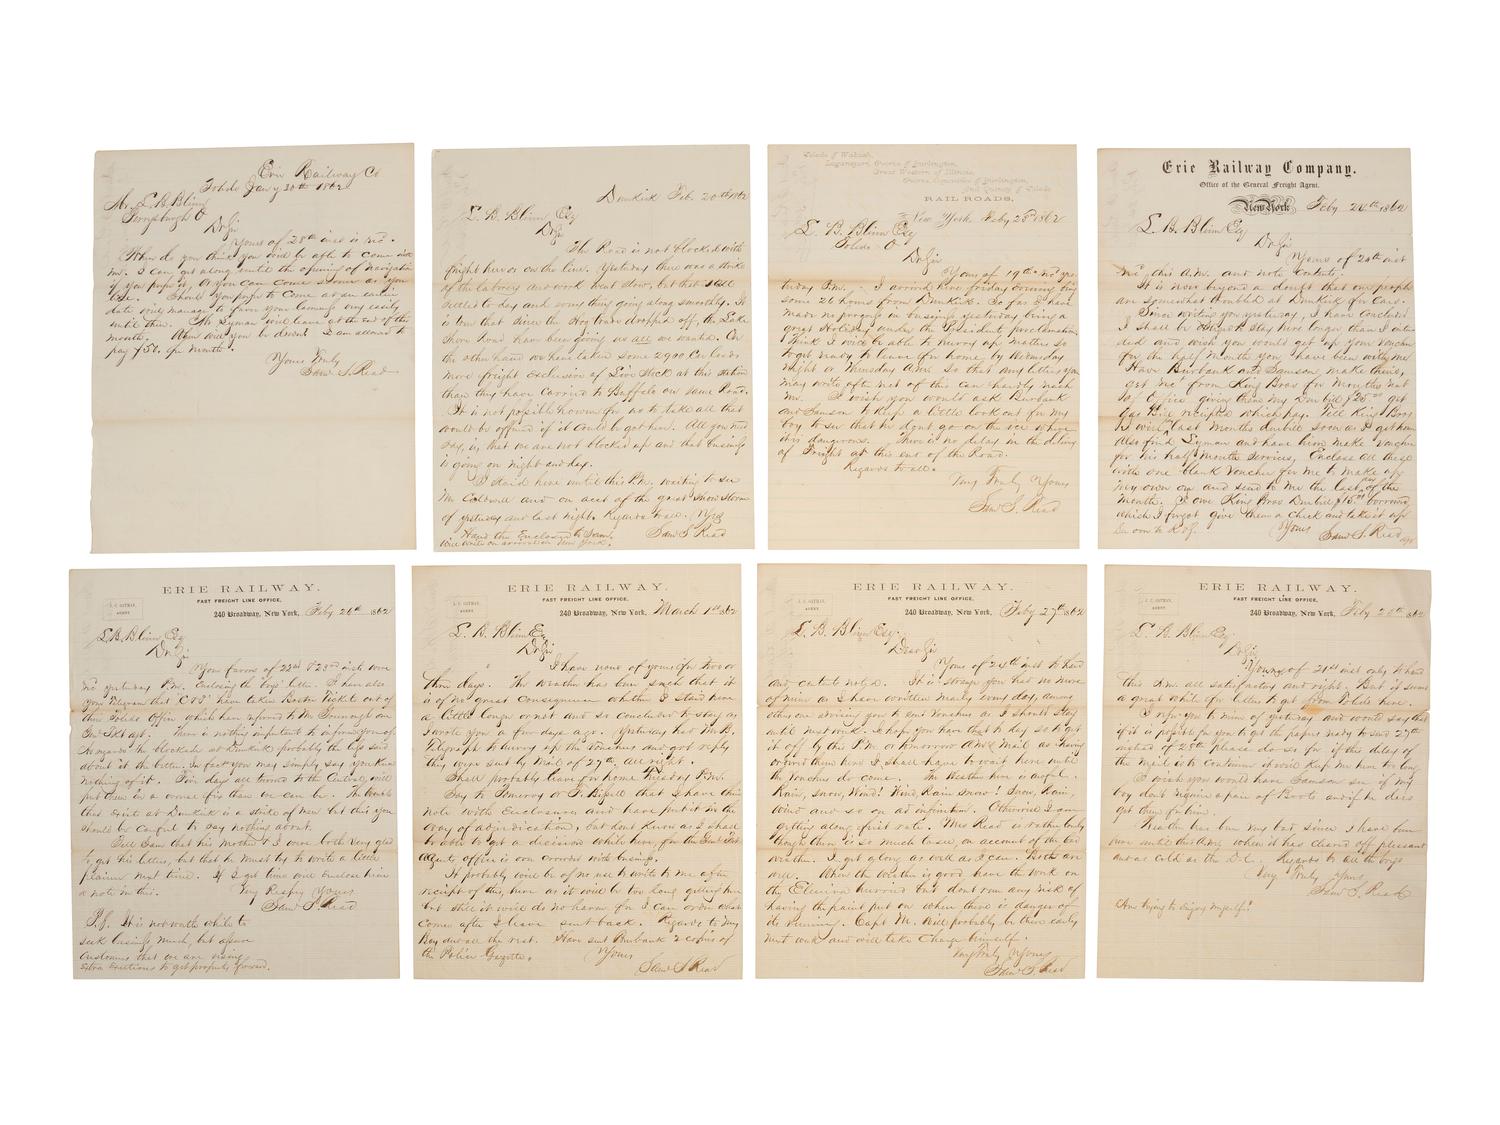 Erie Railway Co
Toledo Jany 30th 1862
Mr. L. B. Blinn
Perrysburgh O
Dr Sir
Yours of 28th inst is rec.
When do you think you will be able to come with
me. I can get along until the opening of Navigation
if you prefer it, or you can come sooner as you
like. Should you prefer to come at an earlier
date will manage to have your business very easily
until then. Mr Lyman will leave at the end of the
month. When will you be down? I am allowed to
pay $50. per Month.
Yours Truly
Sam S. Read
Dunkirk Feb. 20th 1862
L. B. Blinn Esq
Dr Sir
The Road is not blocked with
freight here or on the line. Yesterday there was a strike
of the laborers and work went slow, but that is all
settled to day and every thing going along smoothly. It
is true that since the Hog trade dropped off, the Lake
Shore Road have been giving us all we wanted. On
the other hand we have taken some 2900 Car loads
more freight exclusive of Live Stock at this station
than they have carried to Buffalo on same Road.
It is not possible however for us to take all that
would be offered if it could be got here. All you need
say is, that we are not blocked up and that business
is going on night and day.
I staid here until this P.M. waiting to see
Mr Coldwell and on acct of the great snow storm
of yesterday and last night. Regards to all. Yours
Hand the Enclosed to Sam. Sam S. Read
Will write on arrival in New York.
Toledo & Wabash,
Great Western of Illinois,
RAIL ROADS,
New York Feby 23d 1862
L. B. Blinn Esq
Toledo O
Dr Sir
Yours of 19th rec'd yes-
terday P.M. I arrived here friday evening being
some 26 hours from Dunkirk. So far I have
made no progress in business yesterday being a
great Holiday under the President proclamation.
Think I will be able to hurry up matters so
to get ready to leave for home by Wednesday
night or Thursday A.M. so that any letters you
may write after rect of this can hardly reach
me. I wish you would ask Burbank
and Samson to keep a little look out for my
boy to see that he dont go on the ice where
it is dangerous. There is no delay in the delivery
of Freight at this end of the Road.
Regards to all.
Very Truly Yours
Sam S. Read
Erie Railway Company.
Office of the General Freight Agent.
New York Feby 24th 1862
L. B. Blinn Esq
Dr Sir
Yours of 20th inst
rec'd this A.M. and note contents.
It is now beyond a doubt that our people
are somewhat troubled at Dunkirk for Cars.
Since writing you yesterday, I have concluded
I shall be obliged stay here longer than I inten
ded and wish you would get up your Voucher
for the half Month you have been with me
Have Burbank and Samson make theirs,
get rec't from King Bros for Months rent
of Office giving them my Due bill $25.00 get
Gas Bill receipted which pay. Tell King Bros
I will last months due bill soon as I get home
Also find Lyman and have him make Voucher
for his half Months services, Enclose all these
with one blank Voucher for me to make up
my own on and send to me the last of the
Month. I owe King Bros Due bill $15.00 borrowed
which I forgot give them a check and take it up
Yours
Sam S. Read
ERIE RAILWAY.
FAST FREIGHT LINE OFFICE,
240 Broadway, New York, Feby 26th 1862
AGENT.
L. B. Blinn Esq
Dr Sir
Your favors of 22nd & 23rd insts were
rec yesterday P.M. Enclosing the boys' letter. I have also
your Telegram that have taken Ticket out of
the Toledo Office which have referred to Mr
Genl Tkt agt. There is nothing important to inform you of
As regards the blockade at Dunkirk probably the less said
about it the better. In fact you may simply say you know
nothing of it. Few days all turned to the Central, will
put them in a worse fix than we can be. The trouble
this time at Dunkirk is a strike of men but this you
should be careful to say nothing about.
Tell Sam that his mother & I were both very glad
to get his letter, but that he must try to write a little
plainer next time. If I get time will Enclose him
a note in this. Very Respy Yours
Sam S. Read
P.S. It is not worth while to
seek business much, but assure
customers that we are using
Extra Exertions to get property forward.
ERIE RAILWAY.
FAST FREIGHT LINE OFFICE,
240 Broadway, New York, March 1st 1862
L. B. Blinn Esq
Dr Sir
I have none of yours for two or
three days. The weather has been such that it
is of no great Consequence whether I staid here
a little longer or not and so concluded to stay as
I wrote you a few days ago. Yesterday had Mr B.
Telegraph to hurry up the Vouchers and got reply
they were sent by Mail of 27th. All right.
Shall probably leave for home Tuesday P.M.
Say to Pomeroy or T. Bissell that I have their
note with Enclosures and have put it in the
way of adjudication, but dont know as I shall
be able to get a decision while here, for the Genl Frt
Agents office is over crowded with business.
It probably will be of no use to write to me after
receipt of this, here as it will be too long getting here
but still it will do no harm, for I can order what
comes after I leave sent back. Regards to my
Boy and all the rest. Have sent Burbank 2 copies of
the Police Gazette. Yours
Sam S. Read
ERIE RAILWAY.
FAST FREIGHT LINE OFFICE,
240 Broadway, New York, Feby 27th 1862
AGENT.
L. B. Blinn Esq.
Dear Sir
Yours of 24th inst to hand
and content noted. It is strange you had no more
of mine as I have written nearly every day, among
others one advising you to send Vouchers as I should stay
until next week. I hope you have that to day so to get
it off by this P.M. or tomorrow A.M's Mail as having
ordered them here I shall have to wait here until
the Vouchers do come. The Weather here is awful.
Rain, Snow, Wind! Wind, Rain Snow! Snow, Rain,
Wind and so on ad infinitum. Otherwise I am
getting along first rate. Mrs Read is rather lonely
though there is so much on account of the bad
weather. I get along as well as I can. Both are
well. When the weather is good have the work on
the Elmira hurried but dont run any risk of
having the paint put on when there is danger of
its running. Capt. Mc. Will probably be there early
next week and will take charge himself.
Very Truly Yours
Sam S. Read
ERIE RAILWAY.
FAST FREIGHT LINE OFFICE,
240 Broadway, New York, Feby 25th 1862
AGENT.
L. B. Blinn Esq.
Dr Sir
Yours of 21st inst only to hand
this A.M. all satisfactory and right. But it seems
a great while for letters to get from Toledo here.
I refer you to mine of yesterday and would say that
if it is possible for you to get the papers ready to send 27th
instead of 28th please do so for if the delay of
the Mail is to continue it will keep me here too long.
I wish you would have Samson see if my
boy dont require a pair of Boots and if he does
get them for him.
Weather has been very bad, since I have been
here until this A.M., when it has cleared off pleasant
and as cold as the D—l. Regards to all the boys
Very Truly Yours
Sam S. Read
Am trying to enjoy myself!